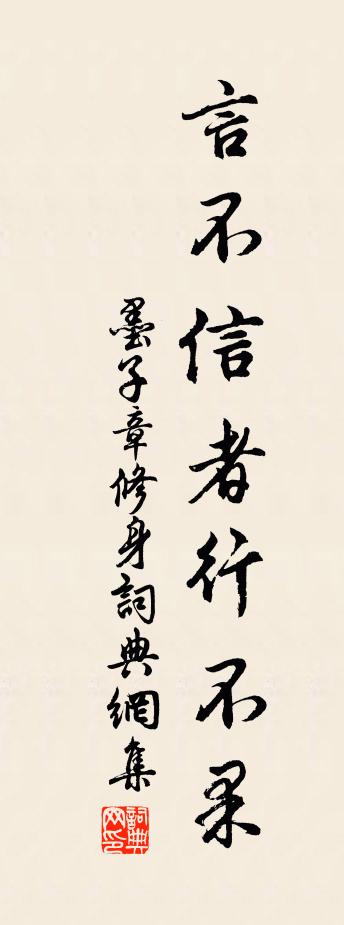 言不信者行不果
墨子章修身詞典網集
詞典网印